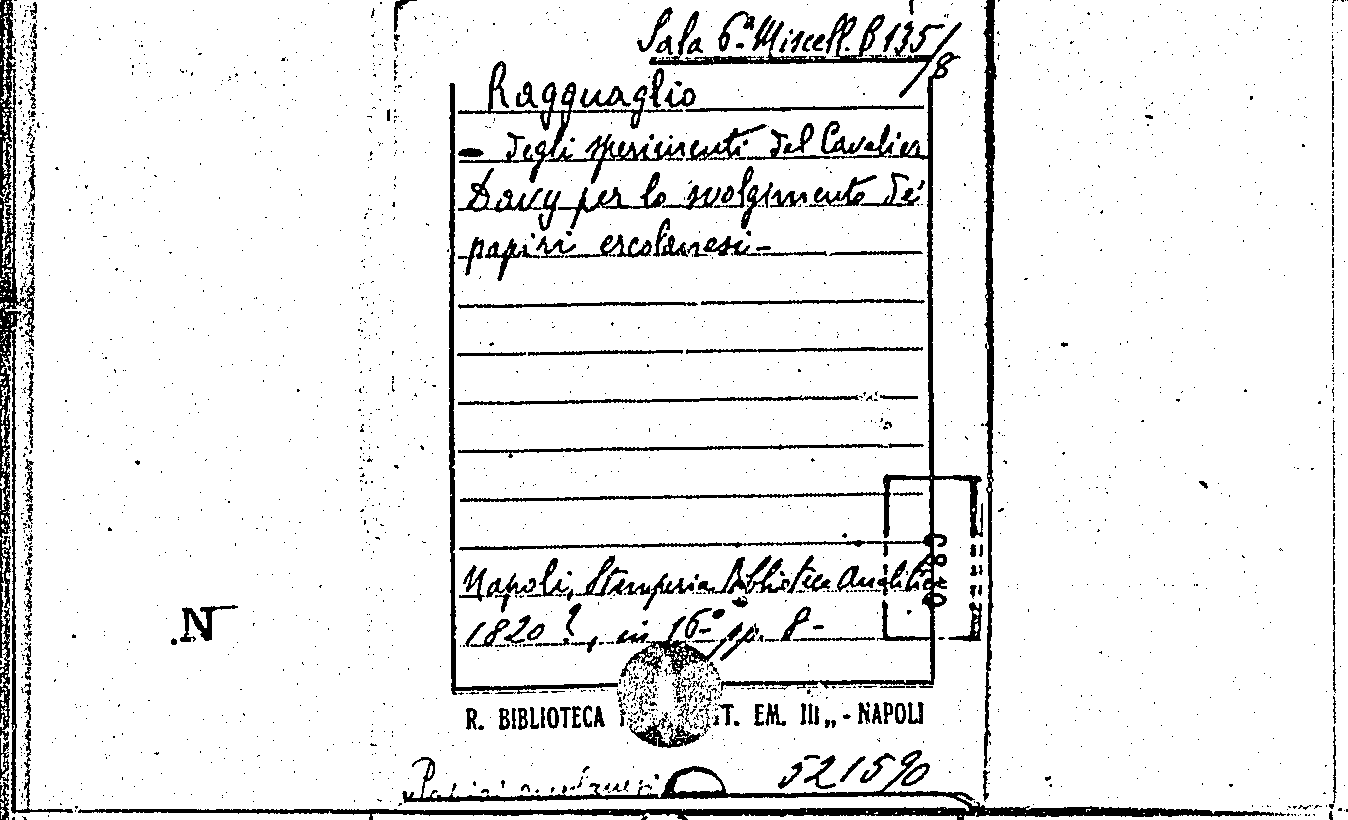 Sala 6ª Miscell. B 135/8
Ragguaglio
- degli sperimenti del Cavalier
Davy per lo svolgimento de'
papiri ercolanesi -
Napoli, Stamperia Biblioteca Analitica
1820 ?, in 16º pp. 8 -
R. BIBLIOTECA T. EM. III„ - NAPOLI
521590
.N